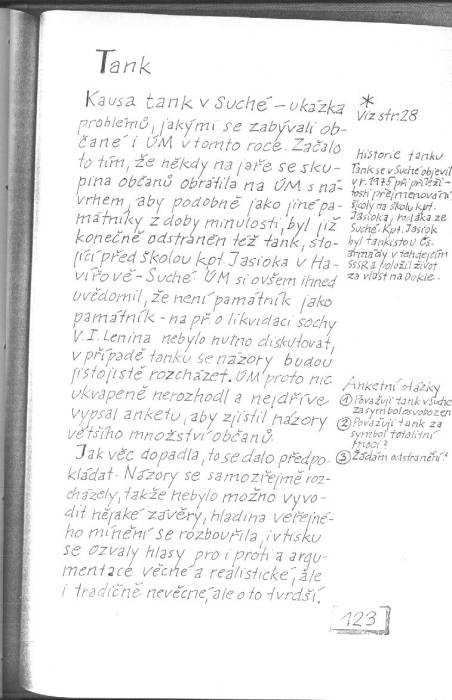 Tank
Kausa tank v Suché – ukázka
problémů, jakými se zabývali ob-
čané i ÚM v tomto roce. Začalo
to tím, že někdy na jaře se sku-
pina občanů obrátila na ÚM s ná-
vrhem, aby podobně jako jiné pa-
mátníky z doby minulosti, byl již
konečně odstraněn též tank, sto-
jící před školou kpt. Jasioka v Ha-
vířově-Suché. ÚM si ovšem ihned
uvědomil, že není památník jako
památník - na př. o likvidaci sochy
V. I. Lenina nebylo nutno diskutovat,
v případě tanku se názory budou
jistojistě rozcházet. ÚM proto nic
ukvapeně nerozhodl a nejdříve
vypsal anketu, aby zjistil názory
většího množství občanů.
Jak věc dopadla, to se dalo předpo-
kládat. Názory se samozřejmě roz-
cházely, takže nebylo možno vyvo-
dit nějaké závěry, hladina veřejné-
ho mínění se rozbouřila, i v tisku
se ozvaly hlasy pro i proti a argu-
mentace věcné a realistické, ale
i tradičně nevěcné, ale o to tvrdší.
*
Viz str. 28
Historie tanku
Tank se v Suché objevil
v r. 1975 při příleži-
tosti přejmenování
školy na školu kpt.
Jasioka, rodáka ze
Suché. Kpt. Jasiok
byl tankistou čs.
armády v tehdejším
SSSR a položil život
za vlast na Dukle.
Anketní otázky
① Považuji tank v Suché
za symbol osvobození
② Považuji tank za
symbol totalitní
moci?
③ Žádám odstranění?
123